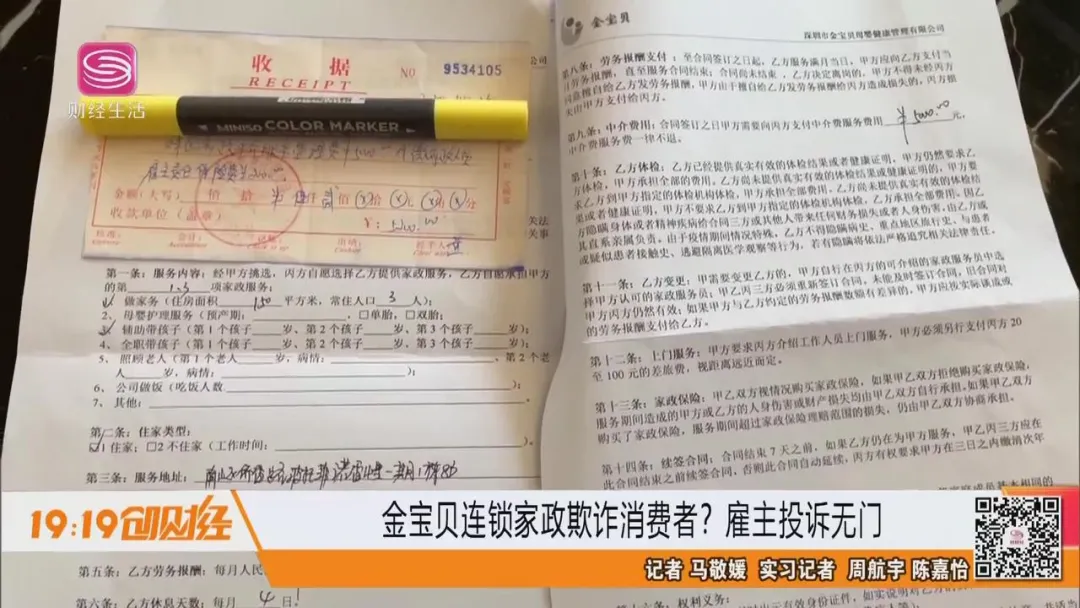 财经生活
收 据
RECEIPT
NO 9534105
MINISO COLOR MARKER
金额（大写）
收款单位（盖章）
第一条：服务内容：经甲方挑选，丙方自愿选择乙方提供家政服务，乙方自愿承担甲方
的第 1.3 项家政服务：
做家务（住房面积 150 平方米，常住人口 3 人）；
2、母婴护理服务（预产期： □单胎，□双胎；
辅助带孩子（第1个孩子 岁、第2个孩子 岁、第3个孩子 岁）；
4、全职带孩子（第1个孩子 岁、第2个孩子 岁、第3个孩子 岁）；
5、照顾老人（第1个老人 岁，病情： ，第2个老
人 岁，病情： ）；
6、公司做饭（吃饭人数 ）；
7、其他：
第二条：住家类型：
1住家；□2不住家（工作时间：
第三条：服务地址：
第五条：乙方劳务报酬：每月人民
第六条：乙方休息天数：每月 4 日！
金宝贝
深圳市金宝贝母婴健康管理有限公司
第八条：劳务报酬支付：至合同签订之日起，乙方服务满月当日，甲方应向乙方支付当
月劳务报酬，直至服务合同结束；合同尚未结束，乙方决定离岗的，甲方不得未经丙方
同意擅自给乙方发劳务报酬，甲方由于擅自给乙方发劳务报酬给丙方造成损失的，丙方损
失由甲方支付给丙方。
第九条：中介费用：合同签订之日甲方需要向丙方支付中介费服务费用 ￥5000.00 元，
中介费服务费一律不退。
第十条：乙方体检：乙方已经提供真实有效的体检结果或者健康证明，甲方仍然要求乙
方体检，甲方承担全部的费用。乙方尚未提供真实有效的体检结果或健康证明的，甲方要
求乙方到甲方指定的体检机构体检，甲方承担全部费用。乙方尚未提供真实有效的体检结
果或者健康证明，甲方不要求乙方到甲方指定的体检机构体检，乙方承担全部费用。因乙
方隐瞒身体或者精神疾病给合同三方或其他人带来任何财务损失或者人身伤害，由乙方或
其直系亲属负责。由于疫情期间情况特殊，乙方不得隐瞒病史、重点地区旅行史、与患者
或疑似患者接触史、逃避隔离医学观察等行为，若有隐瞒将依法严格追究相关法律责任。
第十一条：乙方变更：甲需要变更乙方的，甲方自行在丙方的可介绍的家政服务员中选
择甲方认可的家政服务员；甲乙丙三方必须重新签订合同，未能及时签订合同，但合同对
甲方丙方仍然有效；如果甲方与乙方约定的劳务报酬数额有差异的，甲方应按实际谈成
的劳务报酬支付给乙方。
第十二条：上门服务：甲方要求丙方介绍工作人员上门服务，甲方必须另行支付丙方20
至100元的差旅费，视距离远近而定。
第十三条：家政保险：甲乙双方视情况购买家政保险，如果甲乙双方拒绝购买家政保险，
服务期间造成的甲方或乙方的人身伤害或财产损失均由甲乙双方自行承担。如果甲乙双方
购买了家政保险，服务期间超过家政保险理赔范围的损失，仍由甲乙双方协商承担。
第十四条：续签合同，合同结束7天之前，如果乙方仍在为甲方服务，甲乙丙三方应在
此合同结束之前续签合同，否则此合同自动延续，丙方有权要求甲方在三日之内缴清次年
19:19创财经
金宝贝连锁家政欺诈消费者？雇主投诉无门
记者 马敬媛 实习记者 周航宇 陈嘉怡